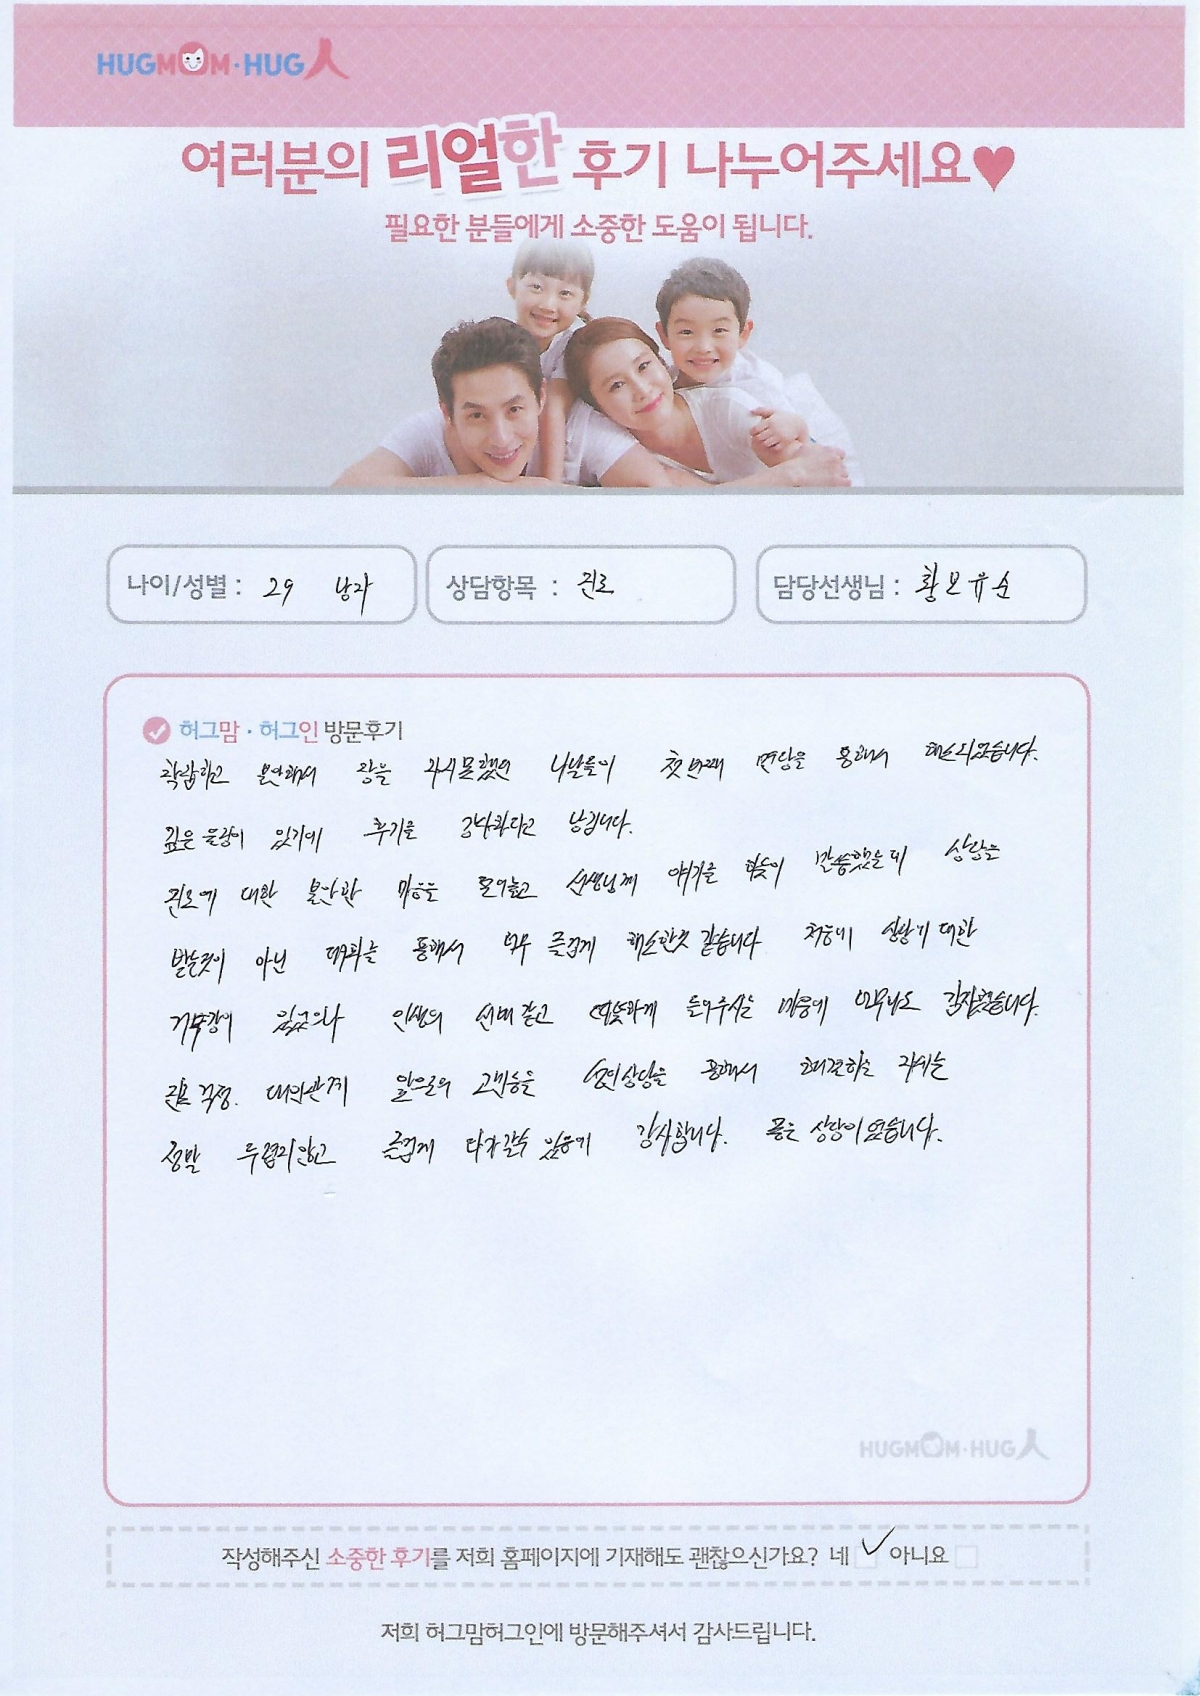 HUGMOM·HUG人
여러분의 리얼한 후기 나누어주세요♥
필요한 분들에게 소중한 도움이 됩니다.
나이/성별 : 29 남자
상담항목 : 진로
담당선생님 : 황보유순
허그맘·허그인 방문후기
착잡하고 불안해서 잠을 자지못했던 나날들이 첫번째 면담을 통해서 해소되었습니다.
깊은 울림이 있기에 후기를 감사하다고 남깁니다.
진로에 대한 불안한 마음을 털어놓고 선생님께 얘기를 말씀했을 데 상담을
받는것이 아닌 대화를 통해서 너무 즐겁게 해소한것 같습니다 처음에 상담에 대한
거부감이 있었으나 인생의 선배 같고 따뜻하게 들어주시는 마음에 너무나도 감사했습니다.
진로 걱정. 대인관계 앞으로의 고민등을 심리상담을 통해서 해결하는 자체는
정말 두렵지않고 즐겁게 다가갈수 있음에 감사합니다. 좋은 상담이었습니다.
HUGMOM·HUG人
작성해주신 소중한 후기를 저희 홈페이지에 기재해도 괜찮으신가요? 네 ✓ 아니요
저희 허그맘허그인에 방문해주셔서 감사드립니다.